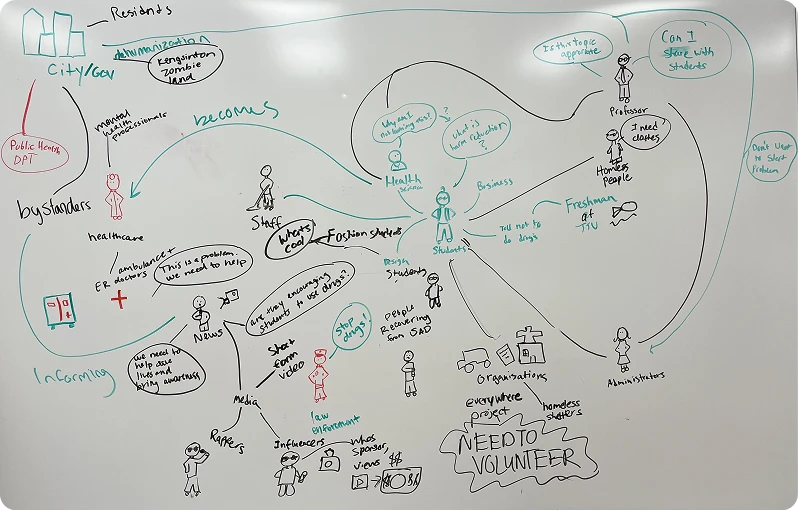 Residents
City/Gov
dehumanization
Kengsinton
Zombie
land
Is this topic
appropriate
Can I
share with
Students
Professor
mental
health
proccessionals
Public Health
DPT
becomes
Why am I
not learning this?
?
What is
harm reduction
?
I need
clothes
Homless
People
Don't want
to start
Problem
Health
Science
Business
bystanders
Staff
Freshman
at
TTU
Tell not to
do drugs
Students
healthcare
What's
cool
Fashion students
ambulance +
ER doctors
This is a problem.
we need to help
Design
Students
are they encouraging
students to use drugs?
News
People
Recovering
from SAD
Stop
drugs!
Informing
we need to
help save
lives and
bring awareness
Short
form
video
Organisations
Administrators
Media
law
enforcement
everywhere
project
homeless
shelters
Rappers
Influencers
Whos
sponsor,
views $$
NEED TO
VOLUNTEER